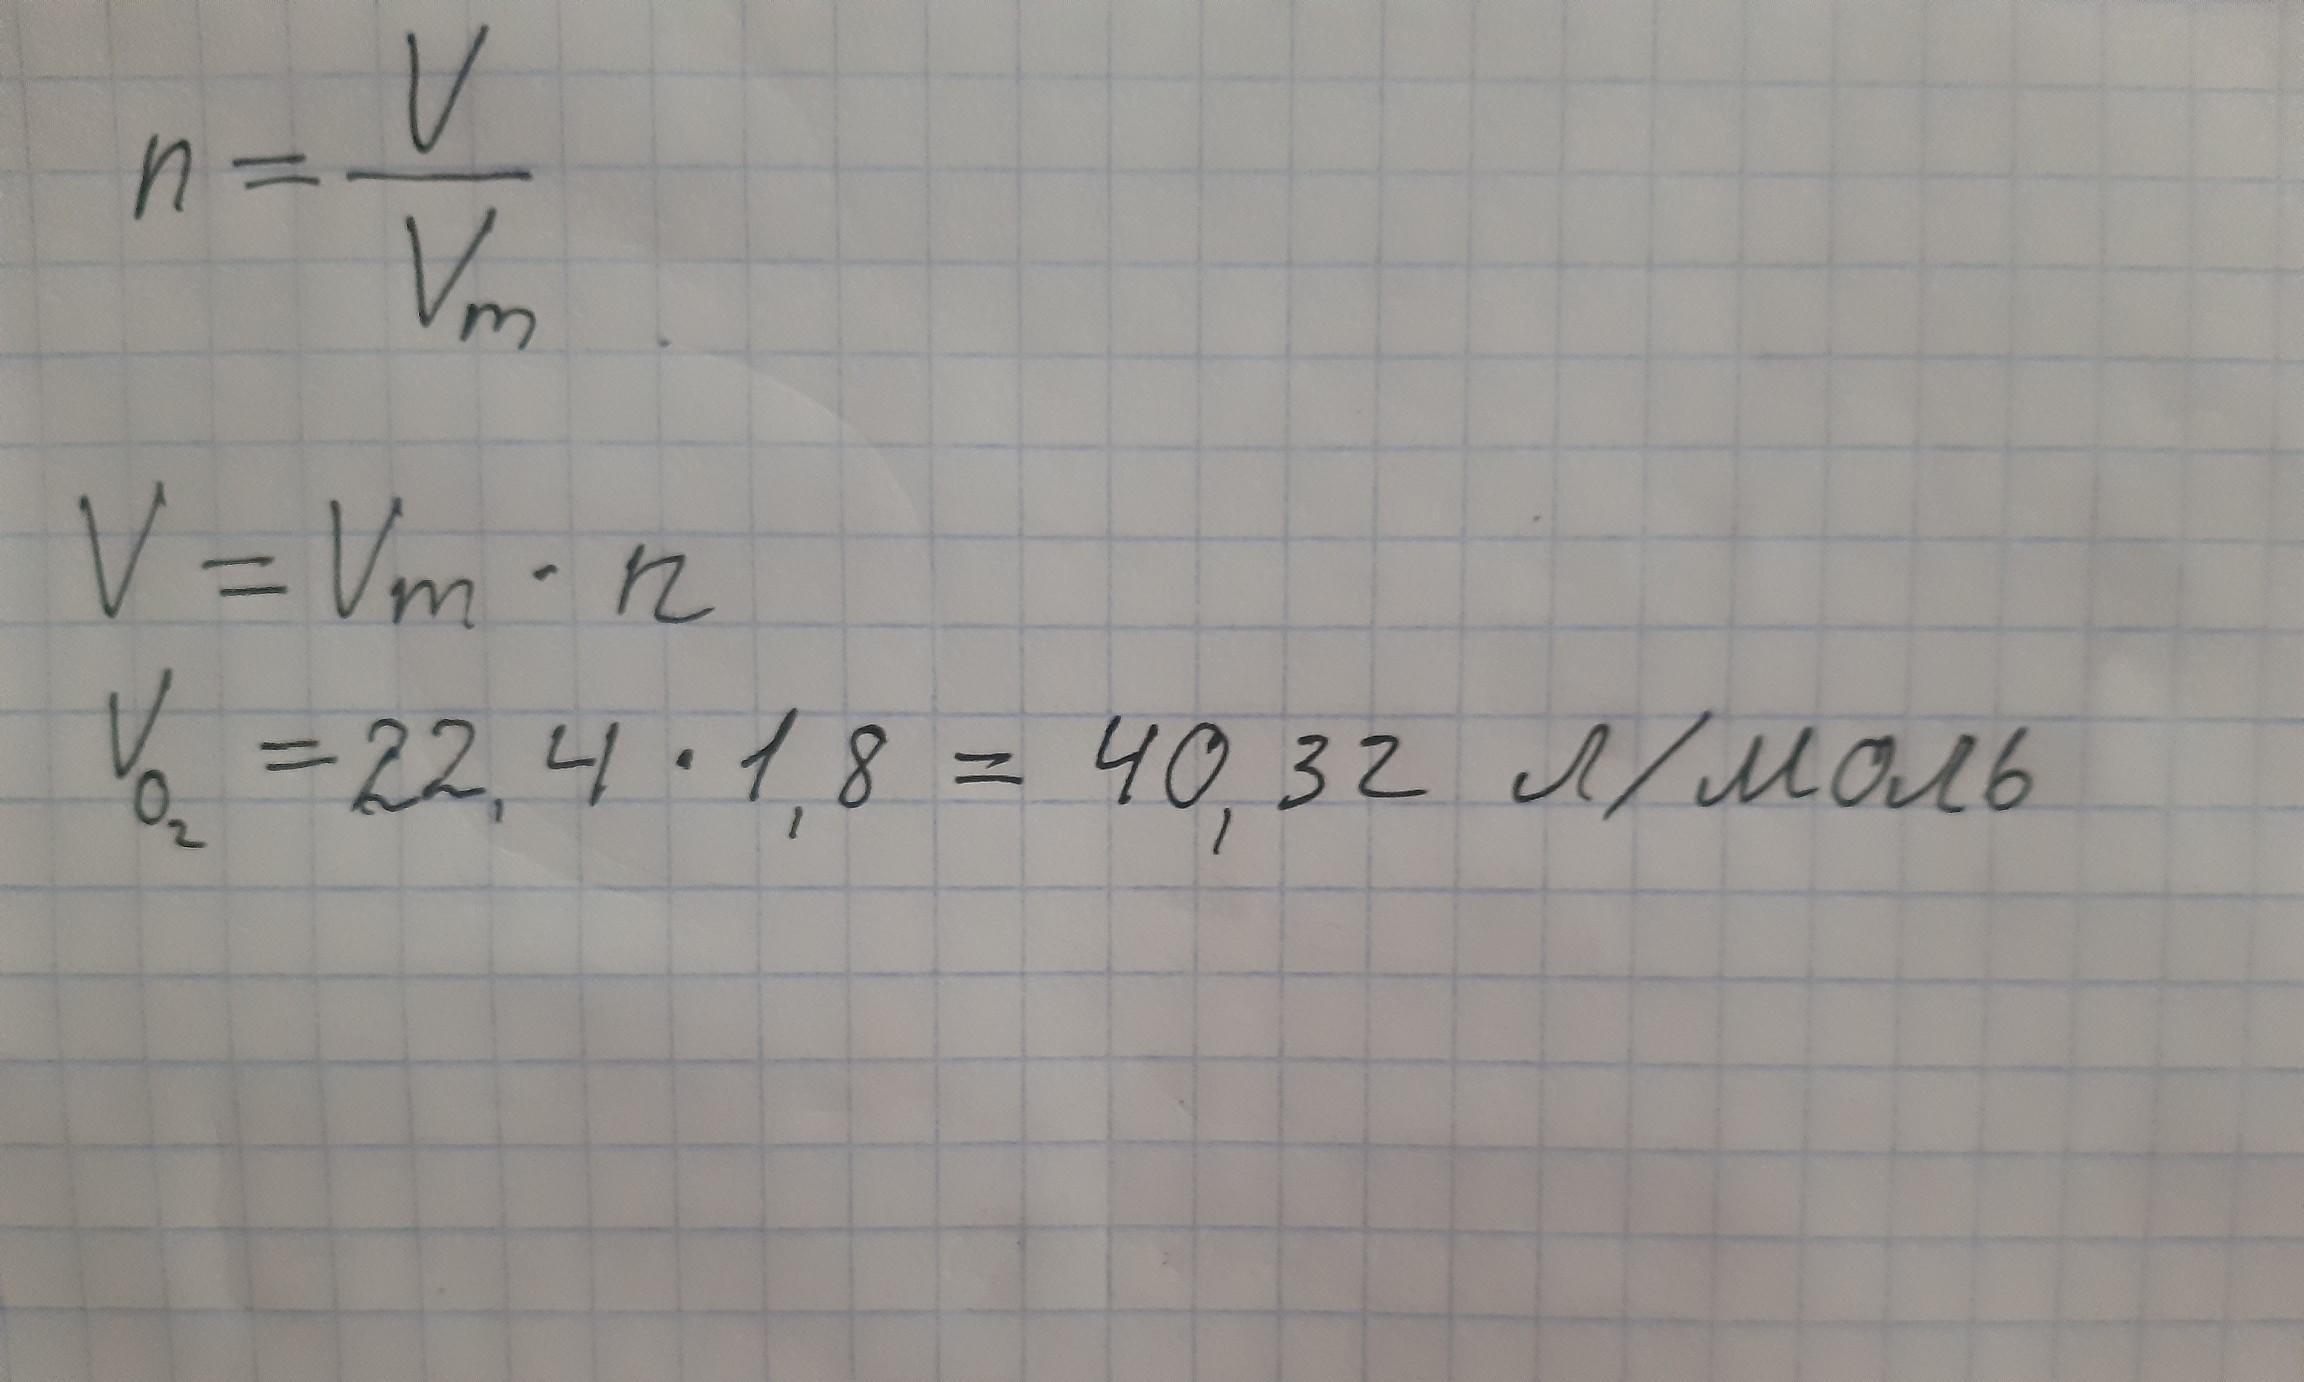 n = V / Vm
V = Vm · n
VO₂ = 22,4 · 1,8 = 40,32 л/моль